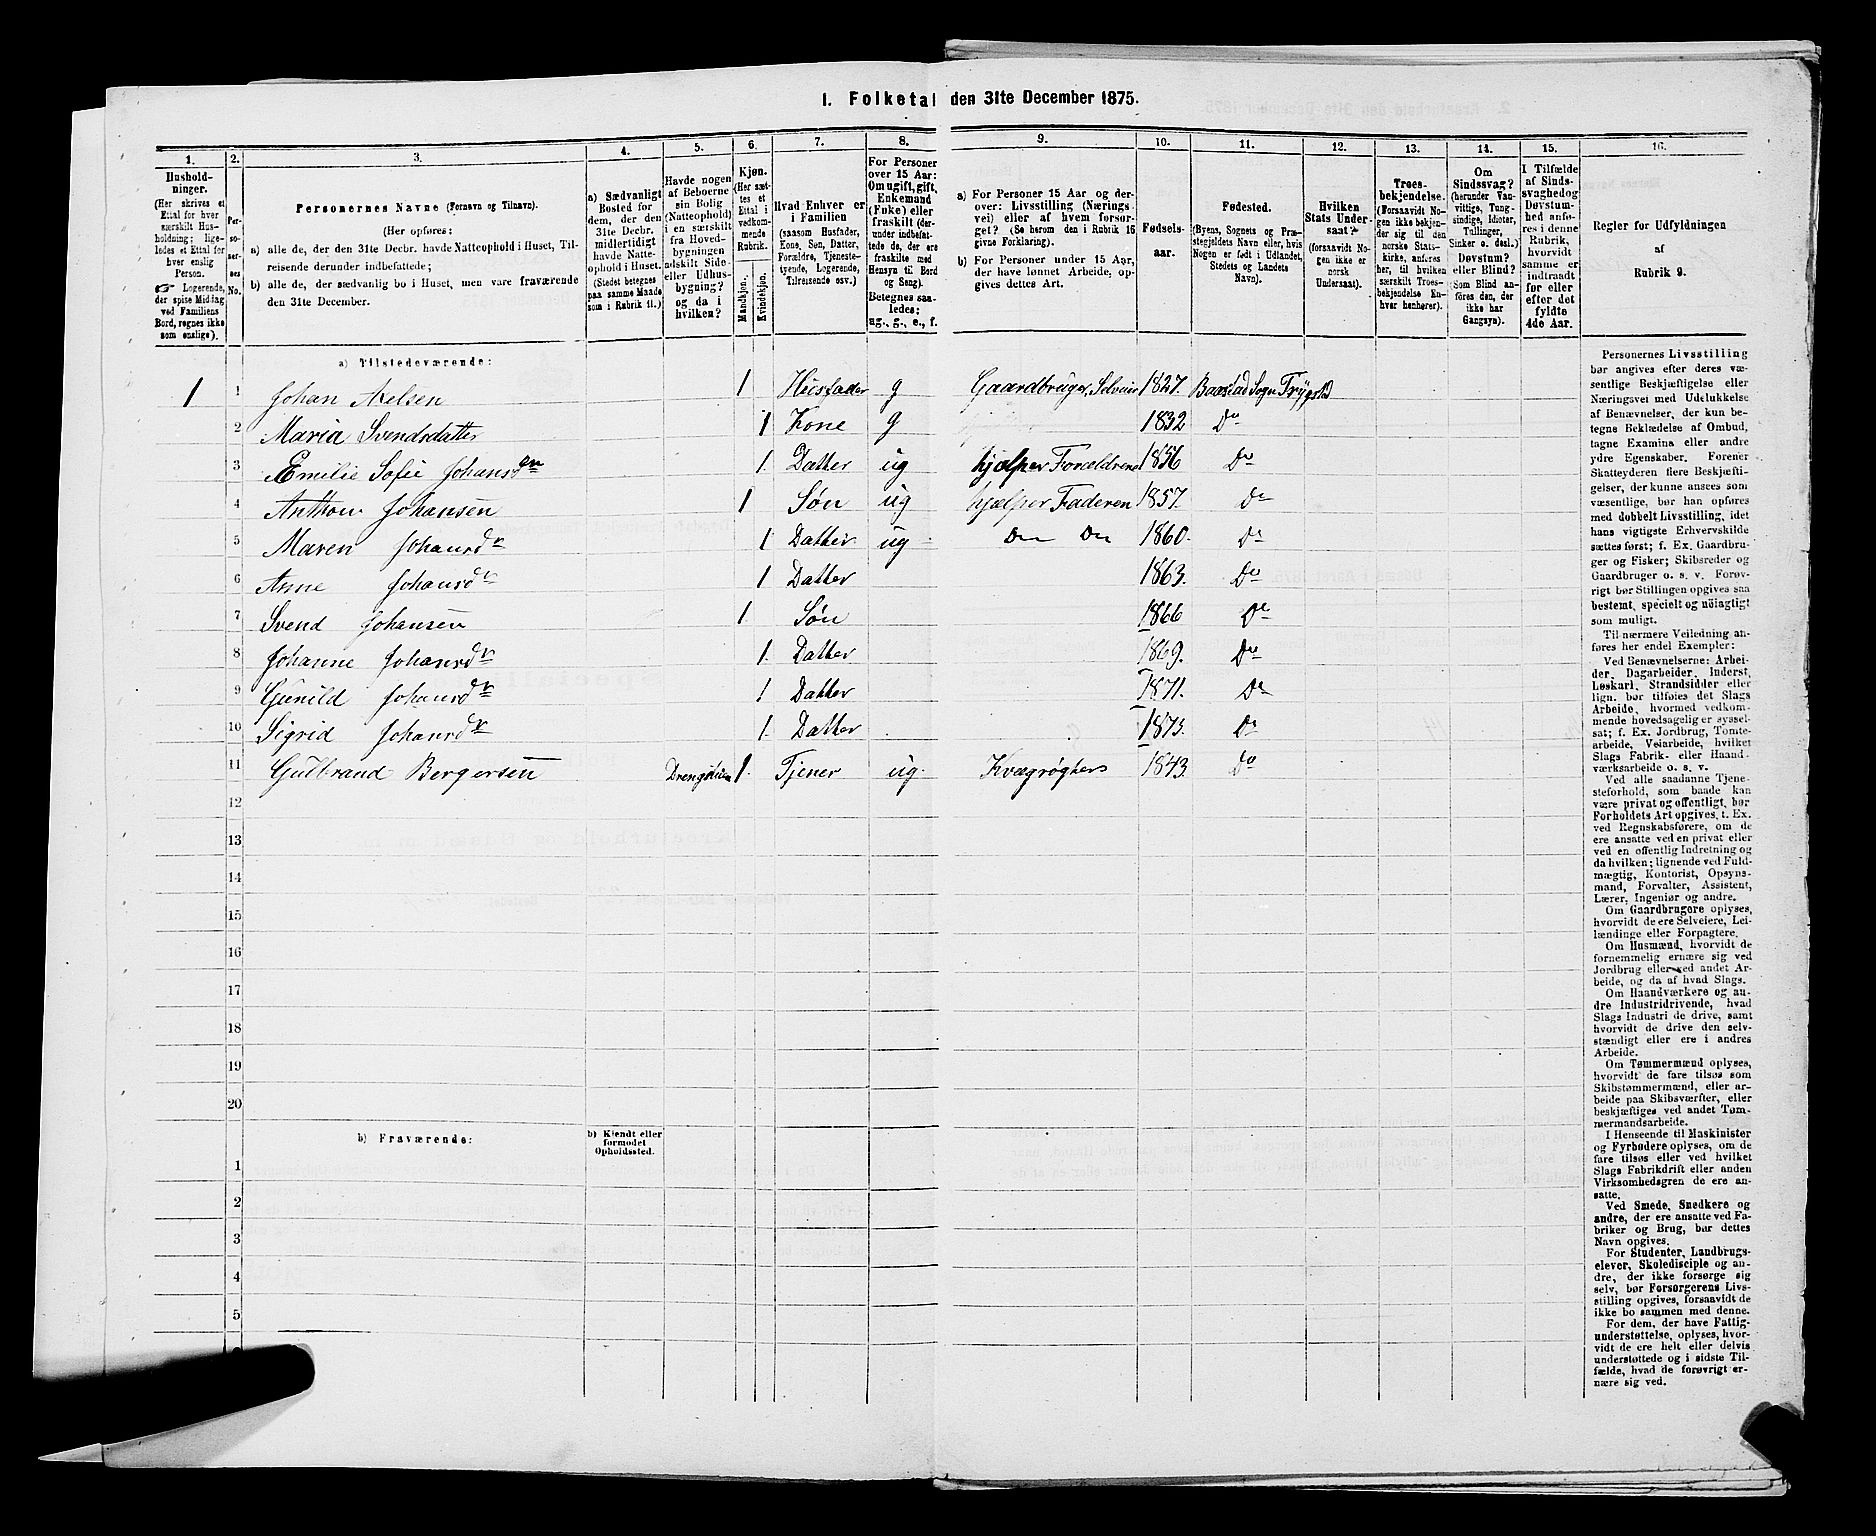 1. Folketal den 31te December 1875.
1. 2. 3. 4. 5. 6. 7. 8. 9. 10. 11. 12. 13. 14. 15. 16.
Husholdninger.
(Her skrives et
Ettal for hver
særskilt Husholdning;
ligeledes et Ettal for
hver enslig
Person.
☞ Logerende,
der spise Middag
ved Familiens
Bord, regnes ikke
som enslige).
Personernes No.
Personernes Navne (Fornavn og Tilnavn).
(Her opføres:
a) alle de, der den 31te Decbr. havde Natteophold i Huset, Tilreisende derunder indbefattede;
b) alle de, der sædvanlig bo i Huset, men vare fraværende
den 31te December.
a) Sædvanligt
Bosted for
dem, der den
31te Decbr.
midlertidigt
havde Natteophold
i Huset.
(Stedet betegnes
paa samme Maade
som i Rubrik 11.)
Havde nogen
af Beboerne
sin Bolig
(Natteophold)
i en særskilt
fra Hovedbygningen
adskilt Side
eller Udhusbygning?
og da i
hvilken?
Kjøn.
(Her sættes
et
Ettal i
vedkommende
Rubrik.
Mandkjøn.
Kvindekjøn.
Hvad Enhver er
i Familien
(saasom Husfader,
Kone, Søn, Datter,
Forældre, Tjenestetyende,
Logerende,
Tilreisende osv.)
For Personer
over 15 Aar:
Om ugift, gift,
Enkemand
(Enke) eller
fraskilt (derunder
indbefattede
de, der ere
fraskilte med
Hensyn til Bord
og Seng).
Betegnes saaledes:
ug., g., e., f.
a) For Personer 15 Aar og derover:
Livsstilling (Næringsvei)
eller af hvem forsørget?
(Se herom den i Rubrik 16
givne Forklaring).
b) For Personer under 15 Aar,
der have lønnet Arbeide, opgives
dettes Art.
Fødselsaar.
Fødested.
(Byens, Sognets og Præstegjeldets
Navn eller, hvis
Nogen er født i Udlandet,
Stedets og Landets
Navn).
Hvilken
Stats Undersaat?
(forsaavidt Nogen
ikke er
norsk
Undersaat).
Troesbekjendelse.
(Forsaavidt Nogen
ikke bekjender
sig til den
norske Statskirke,
anføres
her, til hvilken
særskilt Troesbekjendelse
Enhver
henhører).
Om
Sindssvag?
(herunder Vanvittige,
Tungsindige,
Idioter,
Tullinger,
Sinker o. desl.)
Døvstum?
eller Blind?
(Som Blind anføres
den, der
ikke har
Gangsyn).
I Tilfælde
af Sindssvaghed
og
Døvstumhed
anføres
i denne
Rubrik,
hvorvidt
samme er
indtraadt
før eller
efter det
fyldte
4de Aar.
Regler for Udfyldningen
af
Rubrik 9.
a) Tilstedeværende:
1 1 Johan Axelsen 1 Husfader g Gaardbruger, Selveier 1827. Baastad Sogn Trygstd
2 Maria Svendsdatter 1 Kone g 1832 Do
3 Emilie Sofie Johansdn 1. Datter ug hjelper Forældrene 1856 Do
4 Anthon Johansen 1 Søn ug hjelper Faderen 1857. Do
5 Maren Johansdr 1 Datter ug Do Do 1860. Do
6 Anne Johansdr 1 Datter 1863. Do
7 Svend Johansen 1 Søn 1866 Do
8 Johanne Johansdr 1. Datter 1869. Do
9 Gunild Johansdr 1 Datter 1871. Do
10 Sigrid Johansdr 1. Datter 1873. Do
11 Gulbrand Bergersen Drengstuen 1. Tjener ug. Kvægrøgter 1843. Do
12
13
14
15
16
17
18
19
20
b) Fraværende:
b) Kjendt eller
formodet
Opholdssted.
1
2
3
4
5
Personernes Livsstilling
bør angives efter deres væsentlige
Beskjæftigelse eller
Næringsvei med Udelukkelse
af Benævnelser, der kun betegne
Beklædelse af Ombud,
tagne Examina eller andre
ydre Egenskaber. Forener
Skatteyderen flere Beskjæftigelser,
der kunne ansees som
væsentlige, bør han opføres
med dobbelt Livsstilling, idet
hans vigtigste Erhvervskilde
sættes først; f. Ex. Gaardbruger
og Fisker; Skibsreder og
Gaardbruger o. s. v. Forøvrigt
bør Stillingen opgives saa
bestemt, specielt og nöiagtigt
som muligt.
Til nærmere Veiledning anføres
her endel Exempler:
Ved Benævnelserne: Arbeider,
Dagarbeider, Inderst,
Løskarl, Strandsidder eller
lign. bør tilføies det Slags
Arbeide, hvormed vedkommende
hovedsagelig er sysselsat;
f. Ex. Jordbrug, Tomtearbeide,
Veiarbeide, hvilket
Slags Fabrik- eller Haandværksarbeide
o. s. v.
Ved alle saadanne Tjenesteforhold,
som baade kan
være privat og offentligt, bør
Forholdets Art opgives, t. Ex.
ved Regnskabsførere, om de
ere ansatte ved en privat eller
ved en offentlig Indretning og
da hvilken; lignende ved Fuldmægtig,
Kontorist, Opsynsmand,
Forvalter, Assistent,
Lærer, Ingeniør og andre.
Om Gaardbrugere oplyses,
hvorvidt de ere Selveiere, Leilændinge
eller Forpagtere.
Om Husmænd, hvorvidt de
fornemmelig ernære sig ved
Jordbrug eller ved andet Arbeide,
og da af hvad Slags.
Om Haandværkere og andre
Industridrivende, hvad
Slags Industri de drive, samt
hvorvidt de drive den selvstændigt
eller ere i andres
Arbeide.
Om Tømmermænd oplyses,
hvorvidt de fare tilsøs som
Skibstømmermænd, eller arbeide
paa Skibsværfter, eller
beskjæftiges ved andet Tømmermandsarbeide.
I Henseende til Maskinister
og Fyrbødere oplyses, om de
fare tilsøs eller ved hvilket
Slags Fabrikdrift eller anden
Virksomhedsgren de ere ansatte.
Ved Smede, Snedkere og
andre, der ere ansatte ved Fabriker
og Brug, bør dettes
Navn opgives.
For Studenter, Landbrugselever,
Skoledisciple og andre,
der ikke forsørge sig
selv, bør Forsørgerens Livsstilling
opgives, forsaavidt de
ikke bo sammen med denne.
For dem, der have Fattigunderstøttelse,
oplyses, hvorvidt
de ere helt eller delvis
understøttede og i sidste Tilfælde,
hvad de forøvrigt ernære
sig ved.